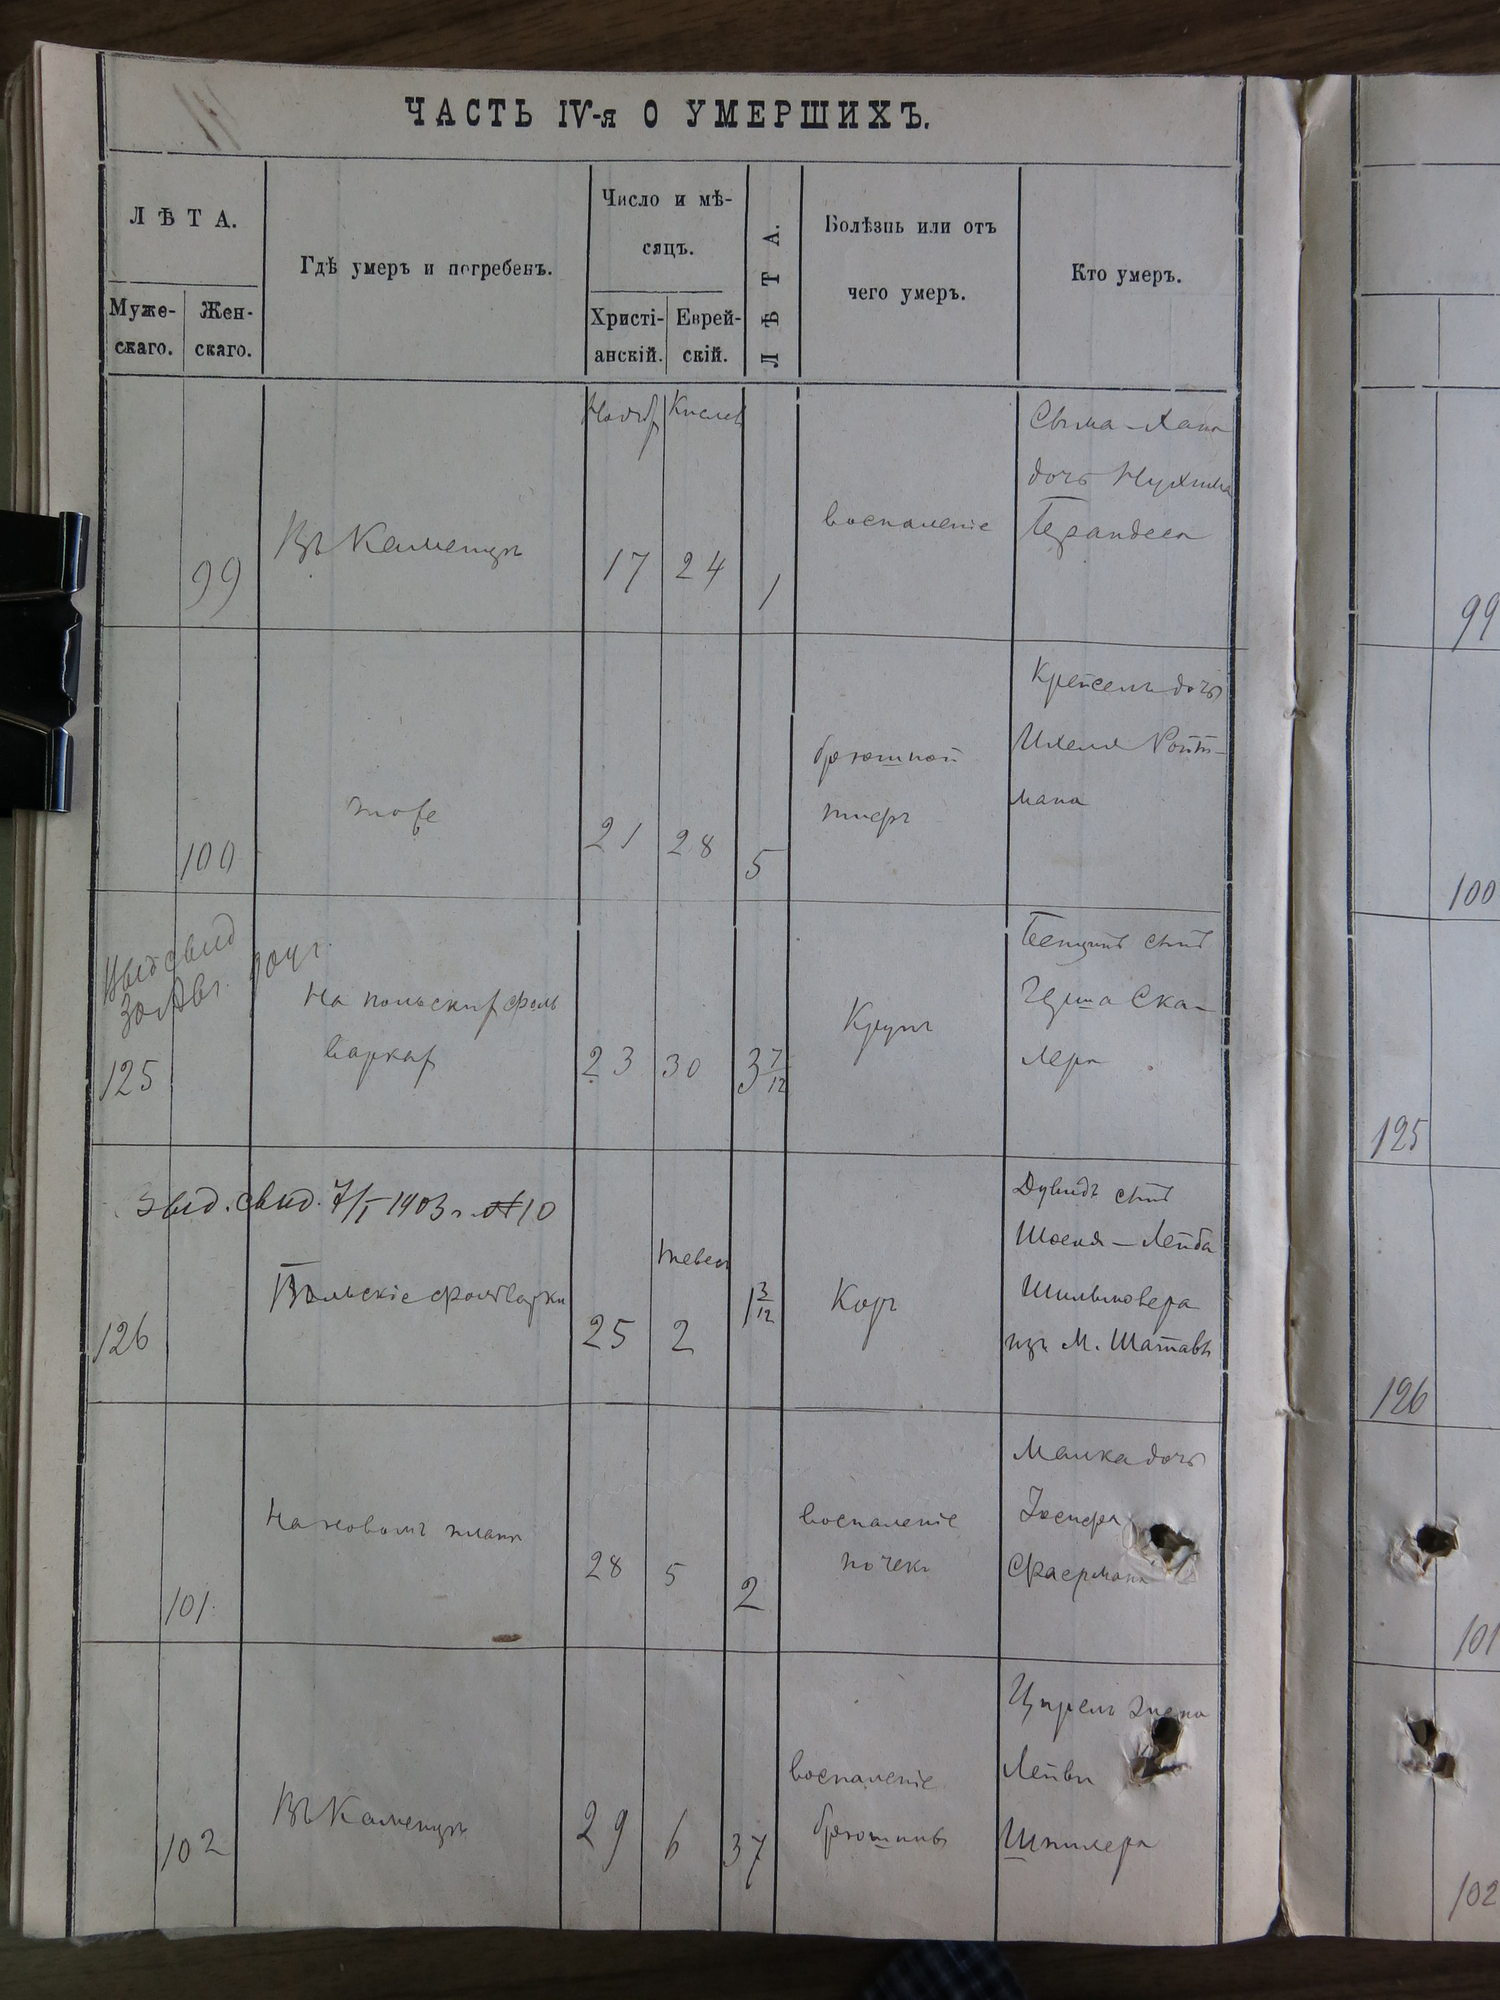 ЧАСТЬ IV-я О УМЕРШИХЪ.
ЛѢТА.
Муже-
скаго.
Жен-
скаго.
Гдѣ умеръ и погребенъ.
Число и мѣ-
сяцъ.
Христі-
анскій.
Еврей-
скій.
ЛѢТА.
Болѣзнь или отъ
чего умеръ.
Кто умеръ.
99
Въ Каменцѣ
Ноябр
17
Кислев
24
1
воспаленіе
Сыма-Хана
дочь Нухима
99
100
тоже
21
28
5
брюшной
тифъ
Крейселъ дочь
Ихеля Ройт-
мана
100
Выд свид
30 Авг. 904 г.
125
На польских фоль
варках
23
30
3 7/12
Крупъ
Бенціинъ сынъ
Герша Ска-
лера
125
Выд. свид. 7/I 1903 г. № 10
126
Польскіе фольварки
25
Тевес
2
1 3/12
Корь
Дувидъ сынъ
Шоеля-Лейба
из М. Шатавы
126
101
На новомъ планѣ
28
5
2
воспаленіе
почекъ
Малка дочь
Іосифа
Файермана
101
102
Въ Каменцѣ
29
6
37
воспаленіе
брюшины
Ципрелъ жена
Лейбы
Шпилера
102